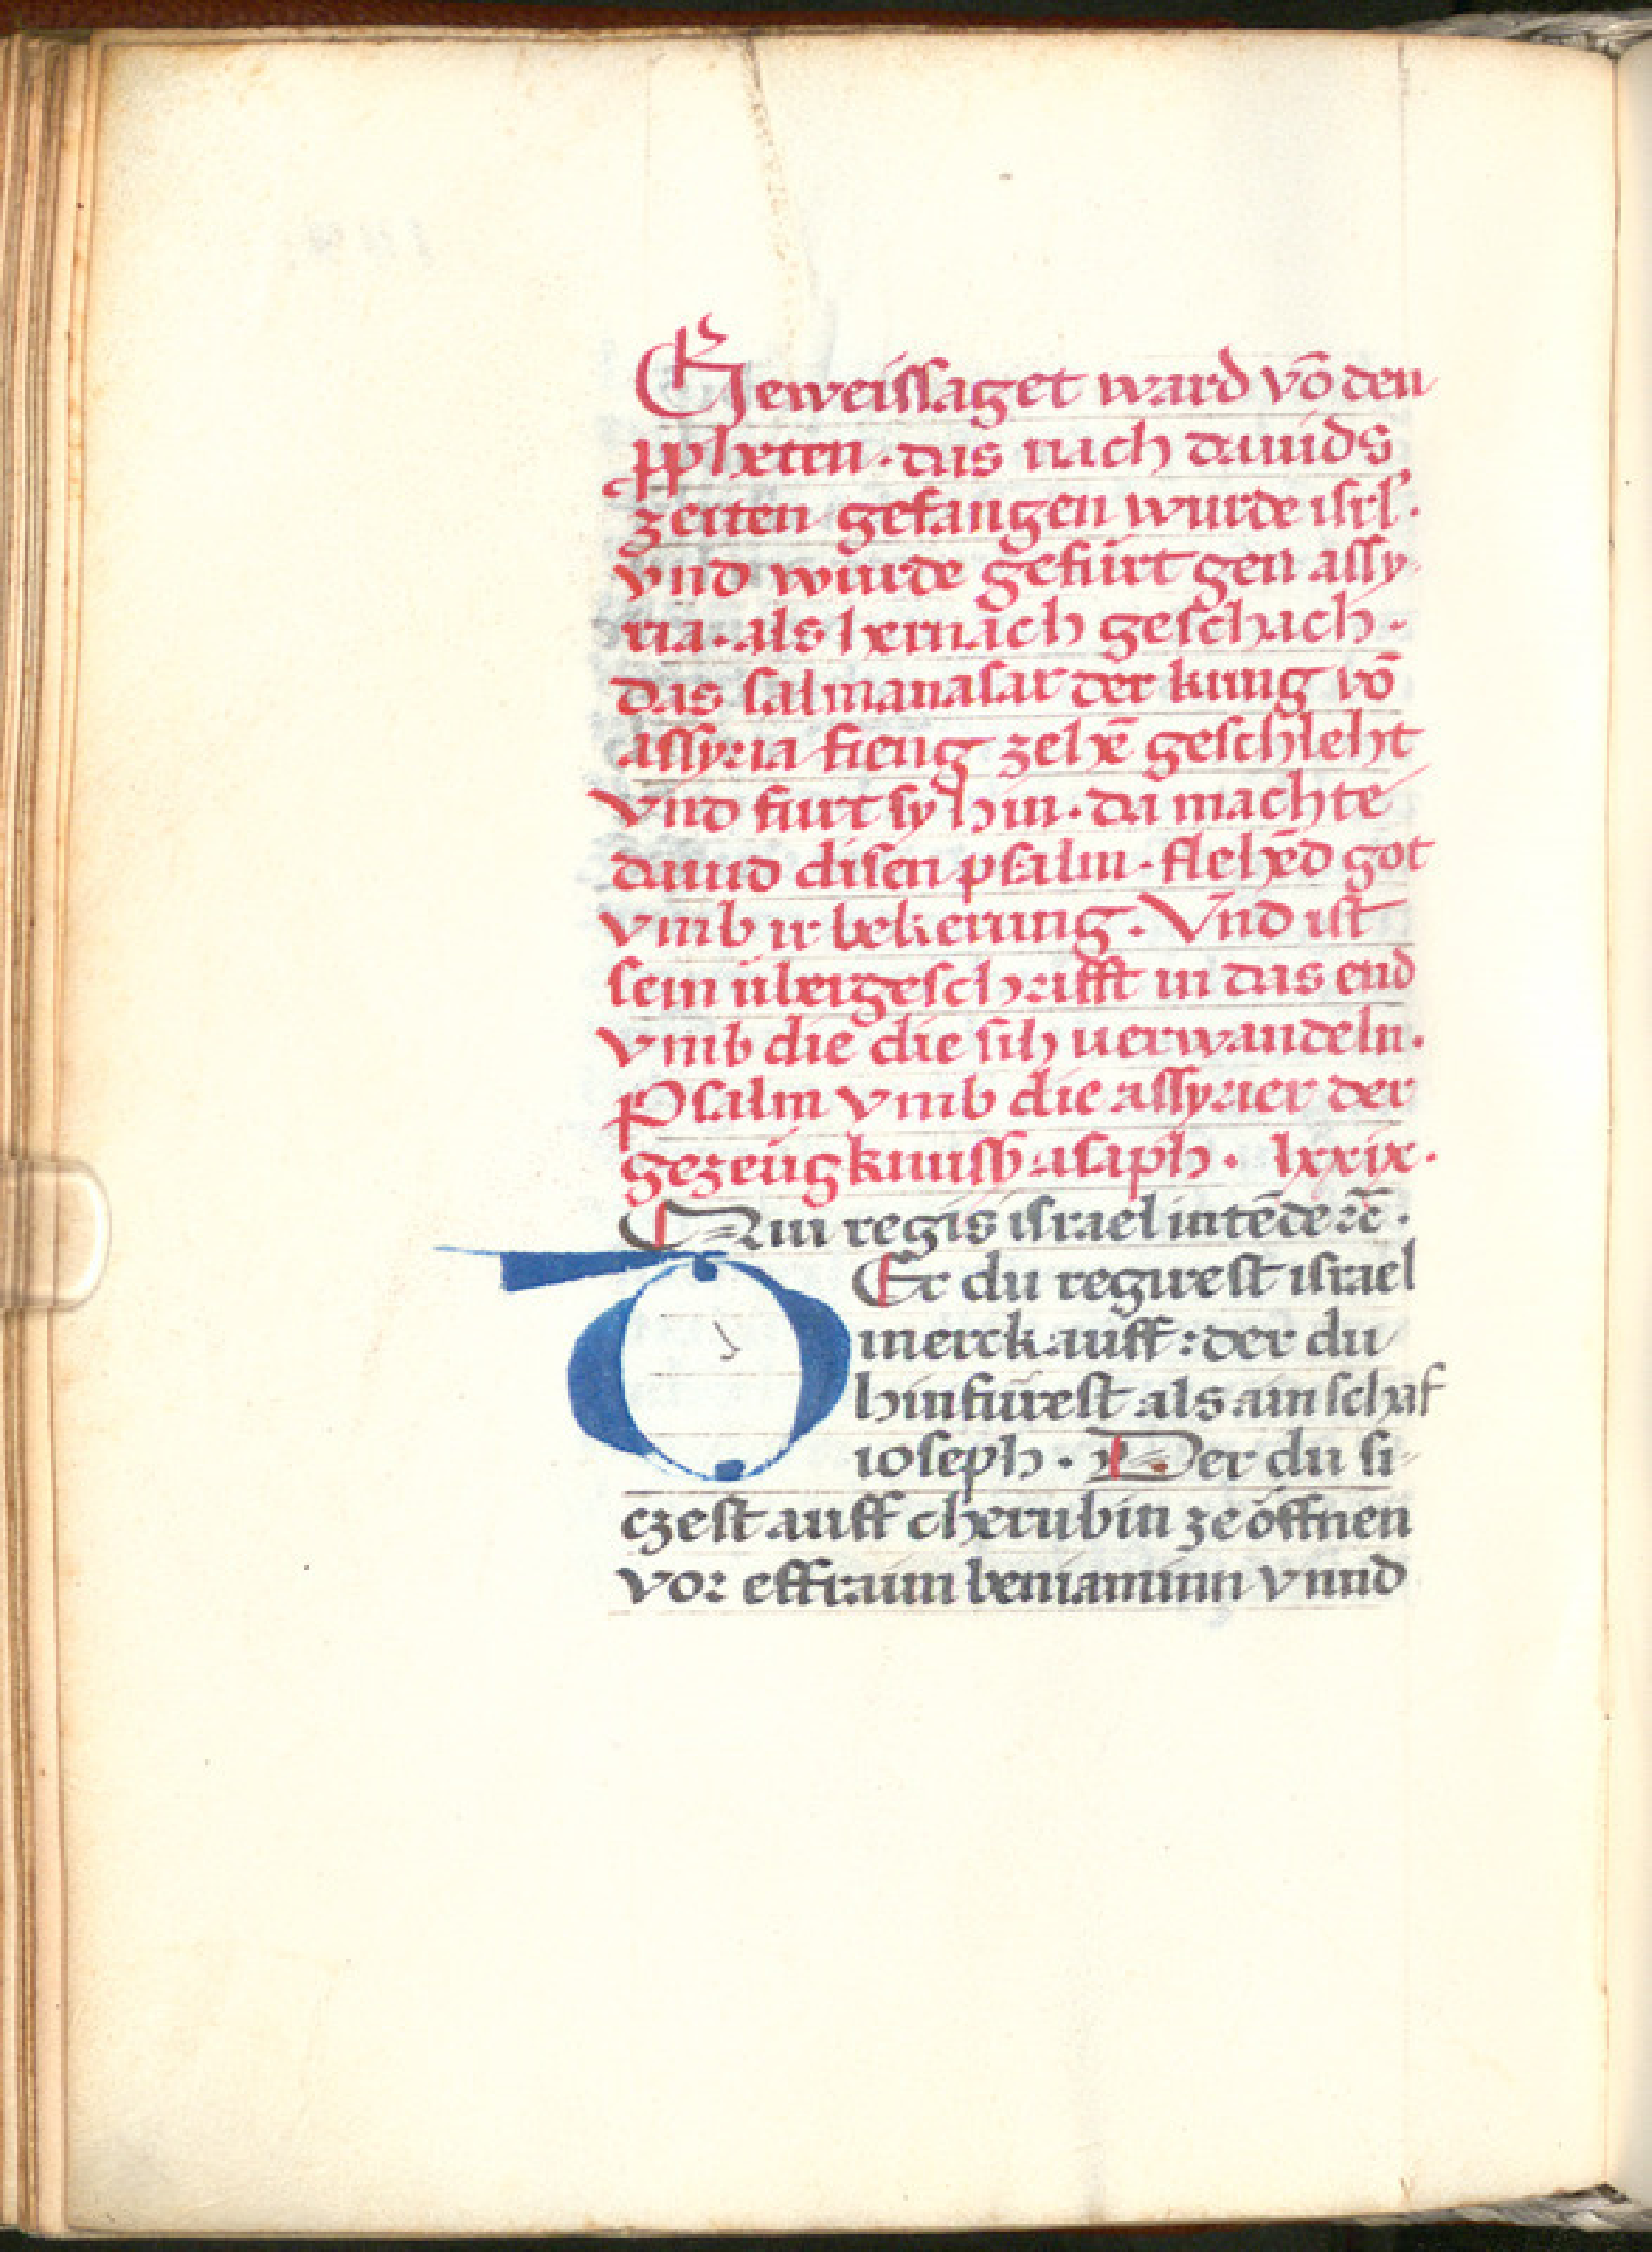 Geweissaget ward vō den
ꝓpheten · das nach dauids
zeitten gefangen wurde isrl'·
vnd wurde gefürt gen assy
ria · als hernach geschach ·
das salmanasar der kunig vō
assyria fieng zehē geschleht
vnd furt sy hin · da machte
dauid disen psalm · flehēd got
vmb ir bekerung · Vnd ist
sein übergeschrifft in das end
vmb die die sih uerwandeln ·
Psalm vmb die assyrier der
gezeügknuß asaph · lxxix ·
Qui regis israel intēde ꝛc̄ ·
DEr du regirest israel
merck auff : der du
hinfürest als ain schaf
ioseph · Der du si-
czest auff cherubin ze öffnen
vor effraim beniaminn vnnd